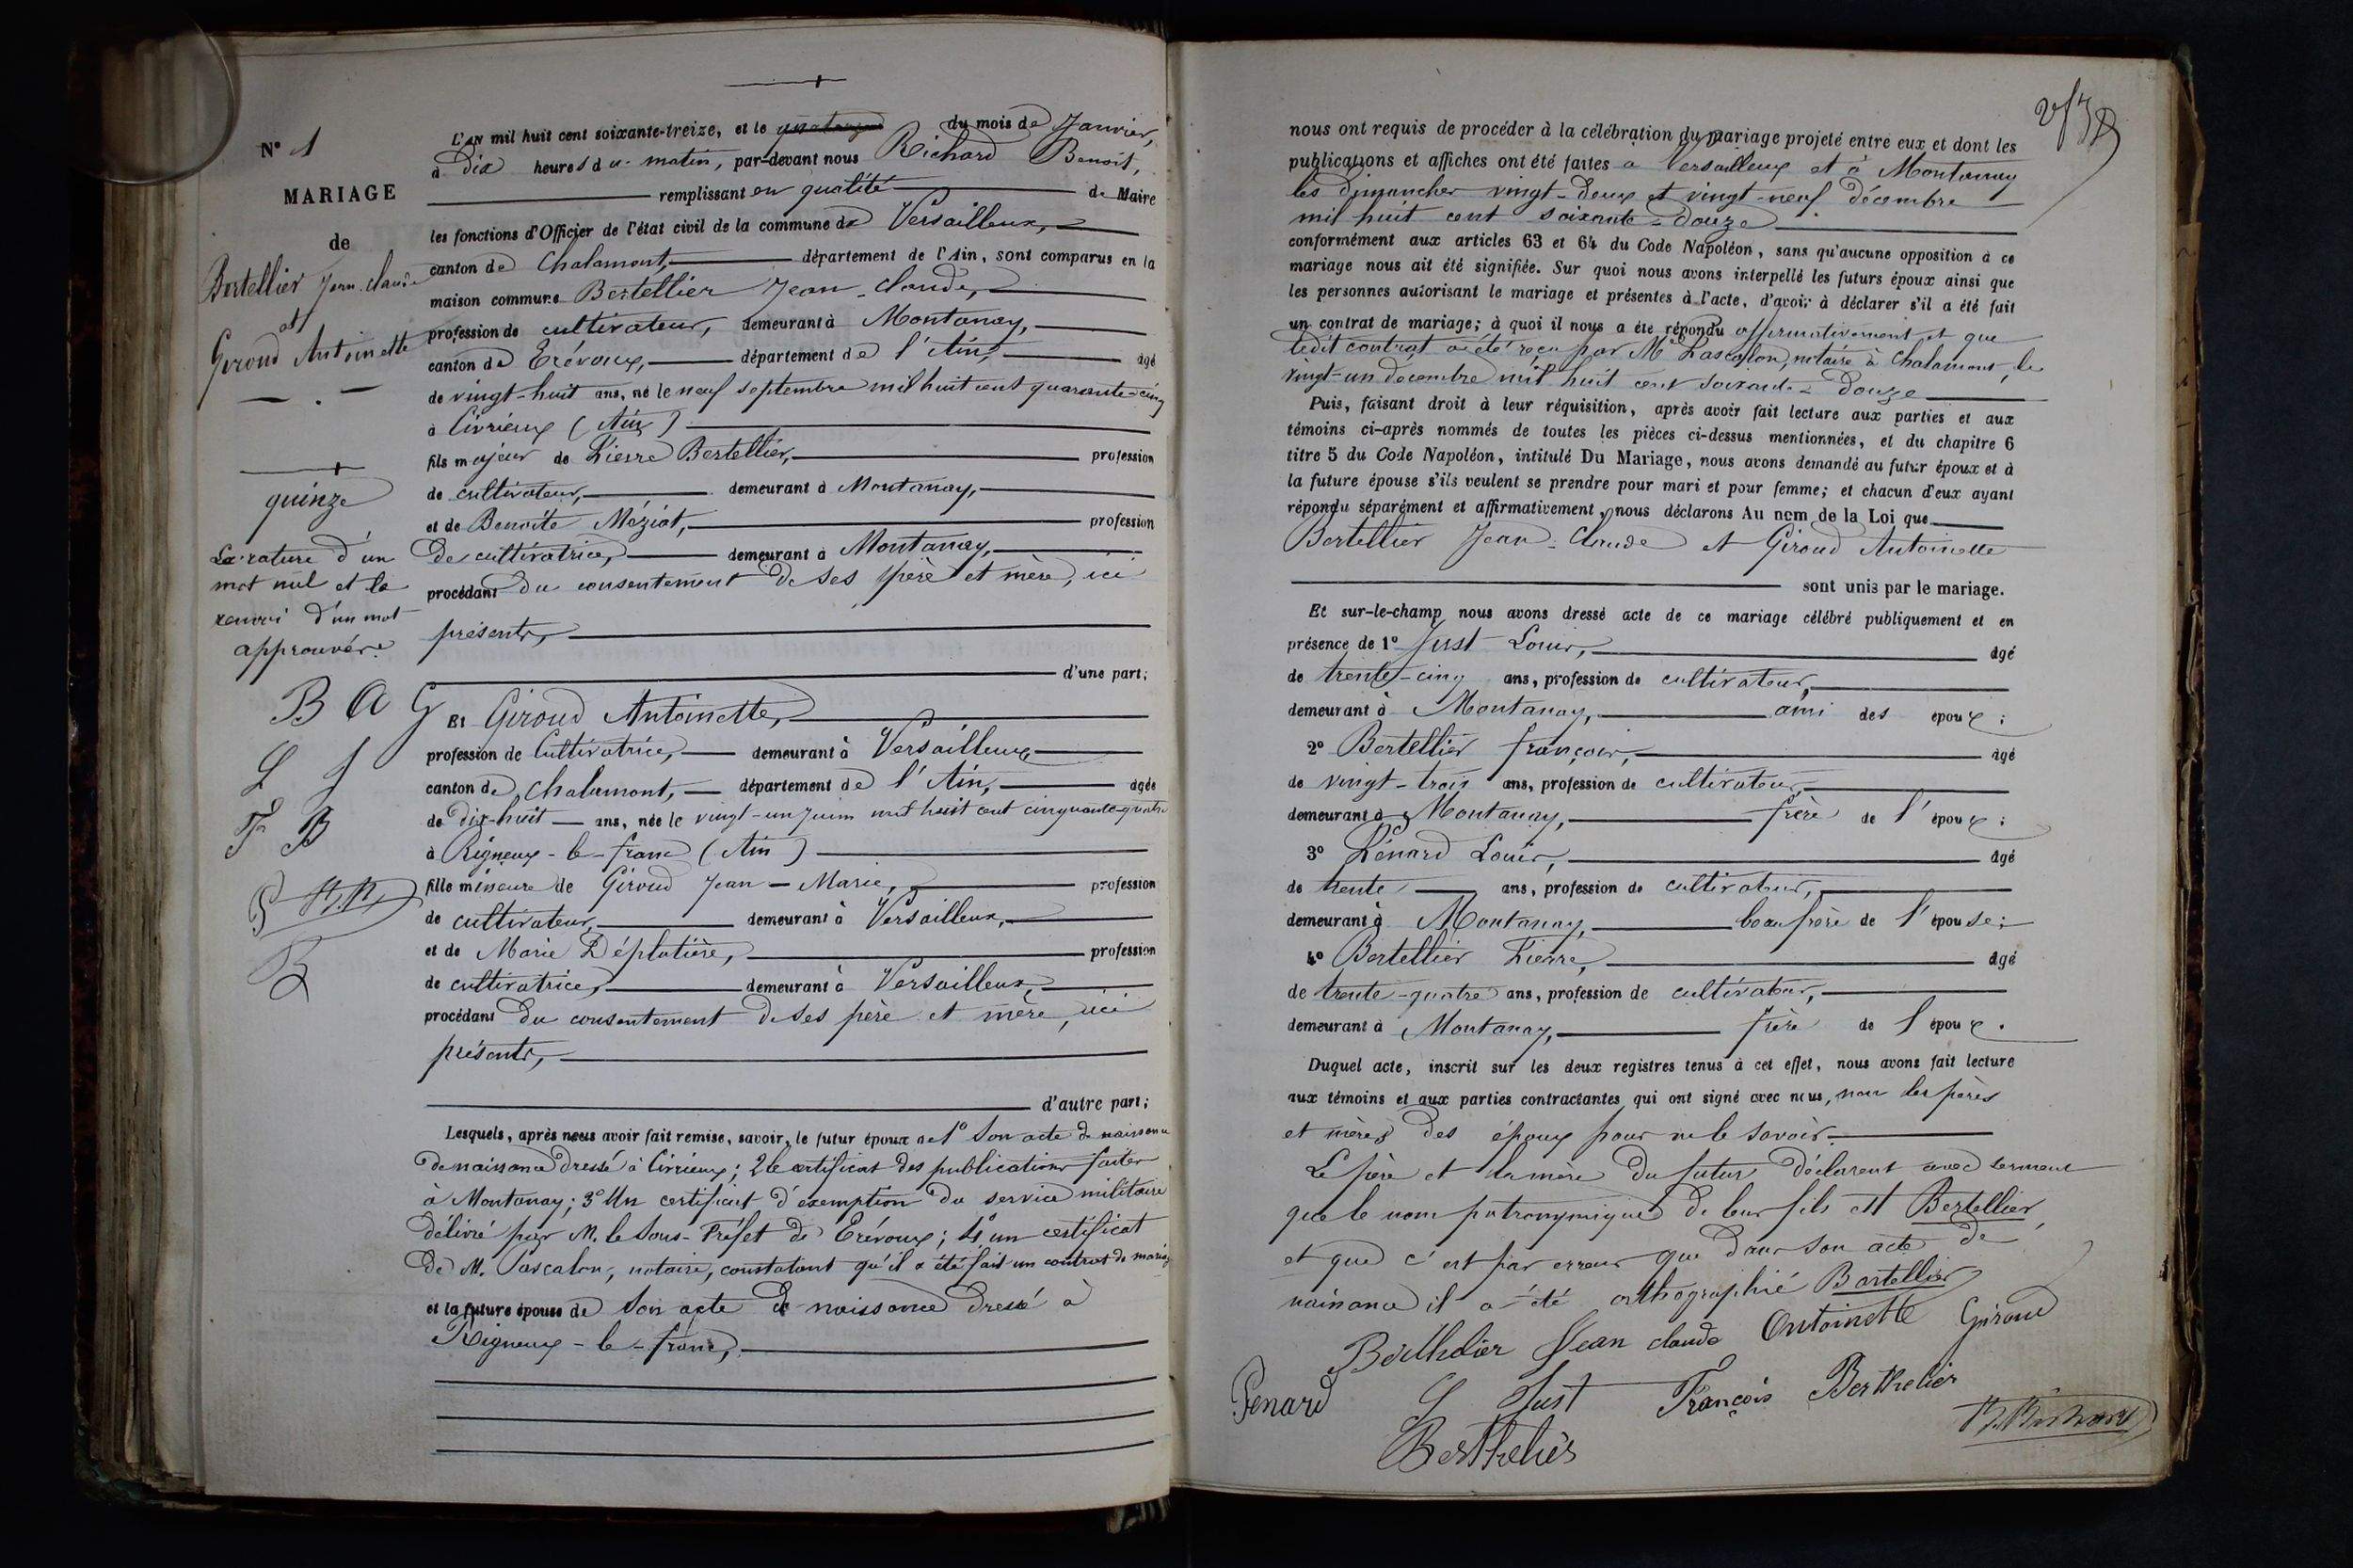 N° 1
MARIAGE
de
Bertellier Jean-Claude
et
Giroud Antoinette
quinze
La rature d'un
mot nul et le
renvoi d'un mot
approuvés.
B A G
L J
F B
P B.R.
B
L'an mil huit cent soixante-treize, et le quatorze du mois de Janvier,
à dix heures du matin, par-devant nous Richard Benoit,
remplissant en qualité de Maire
les fonctions d'Officier de l'état civil de la commune de Versailleux,
canton de Chalamont, département de l'Ain, sont comparus en la
maison commune Bertellier Jean-Claude,
profession de cultivateur, demeurant à Montanay,
canton de Trévoux, département de l'Ain, âgé
de vingt-huit ans, né le neuf septembre mil huit cent quarante-cinq
à Civrieux (Ain)
fils majeur de Pierre Bertellier, profession
de cultivateur, demeurant à Montanay,
et de Benoite Méziat, profession
de cultivatrice, demeurant à Montanay,
procédant du consentement de ses père et mère, ici
présents,
d'une part;
Et Giroud Antoinette,
profession de Cultivatrice, demeurant à Versailleux
canton de Chalamont, département de l'Ain, âgée
de dix-huit ans, née le vingt-un Juin mil huit cent cinquante-quatre
à Rigneux-le-franc (Ain)
fille mineure de Giroud Jean-Marie, profession
de cultivateur, demeurant à Versailleux,
et de Marie Déplatière, profession
de cultivatrice, demeurant à Versailleux,
procédant du consentement de ses père et mère, ici
présents,
d'autre part;
Lesquels, après nous avoir fait remise, savoir, le futur époux de 1° Son acte de naissance
de naissance dressé à Civrieux; 2 le certificat des publications faites
à Montanay; 3° Un certificat d'exemption du service militaire
délivré par M. le Sous-Préfet de Trévoux; 4° un certificat
de M. Pascalon, notaire, constatant qu'il a été fait un contrat de mariage
et la future épouse de Son acte de naissance dressé à
Rigneux-le-franc,
nous ont requis de procéder à la célébration du mariage projeté entre eux et dont les
publications et affiches ont été faites à Versailleux et à Montanay
les dimanches vingt-deux et vingt-neuf décembre
mil huit cent soixante-douze
conformément aux articles 63 et 64 du Code Napoléon, sans qu'aucune opposition à ce
mariage nous ait été signifiée. Sur quoi nous avons interpellé les futurs époux ainsi que
les personnes autorisant le mariage et présentes à l'acte, d'avoir à déclarer s'il a été fait
un contrat de mariage; à quoi il nous a été répondu affirmativement et que
ledit contrat a été reçu par Me Pascalon, notaire à Chalamont, le
vingt-un décembre mil huit cent soixante-douze
Puis, faisant droit à leur réquisition, après avoir fait lecture aux parties et aux
témoins ci-après nommés de toutes les pièces ci-dessus mentionnées, et du chapitre 6
titre 5 du Code Napoléon, intitulé Du Mariage, nous avons demandé au futur époux et à
la future épouse s'ils veulent se prendre pour mari et pour femme; et chacun d'eux ayant
répondu séparément et affirmativement, nous déclarons Au nom de la Loi que
Bertellier Jean-Claude et Giroud Antoinette
sont unis par le mariage.
Et sur-le-champ nous avons dressé acte de ce mariage célébré publiquement et en
présence de 1° Just Louis, âgé
de trente-cinq ans, profession de cultivateur,
demeurant à Montanay, ami des époux;
2° Bertellier françois, âgé
de vingt-trois ans, profession de cultivateur,
demeurant à Montanay, frère de l'époux;
3° Pénard Louis, âgé
de trente ans, profession de cultivateur,
demeurant à Montanay, beaufrère de l'épouse;
4° Bertellier Pierre, âgé
de trente-quatre ans, profession de cultivateur,
demeurant à Montanay, frère de l'époux.
Duquel acte, inscrit sur les deux registres tenus à cet effet, nous avons fait lecture
aux témoins et aux parties contractantes qui ont signé avec nous, non les pères
et mères des époux pour ne le savoir.
Le père et la mère du futur déclarent avec serment
que le nom patronymique de leur fils est Bertellier,
et que c'est par erreur que dans son acte de
naissance il a été orthographié Bartellier
Berthelier Jean claude Antoinette Giroud
Penard L Just François Berthelier
B. Richard
Berthelier